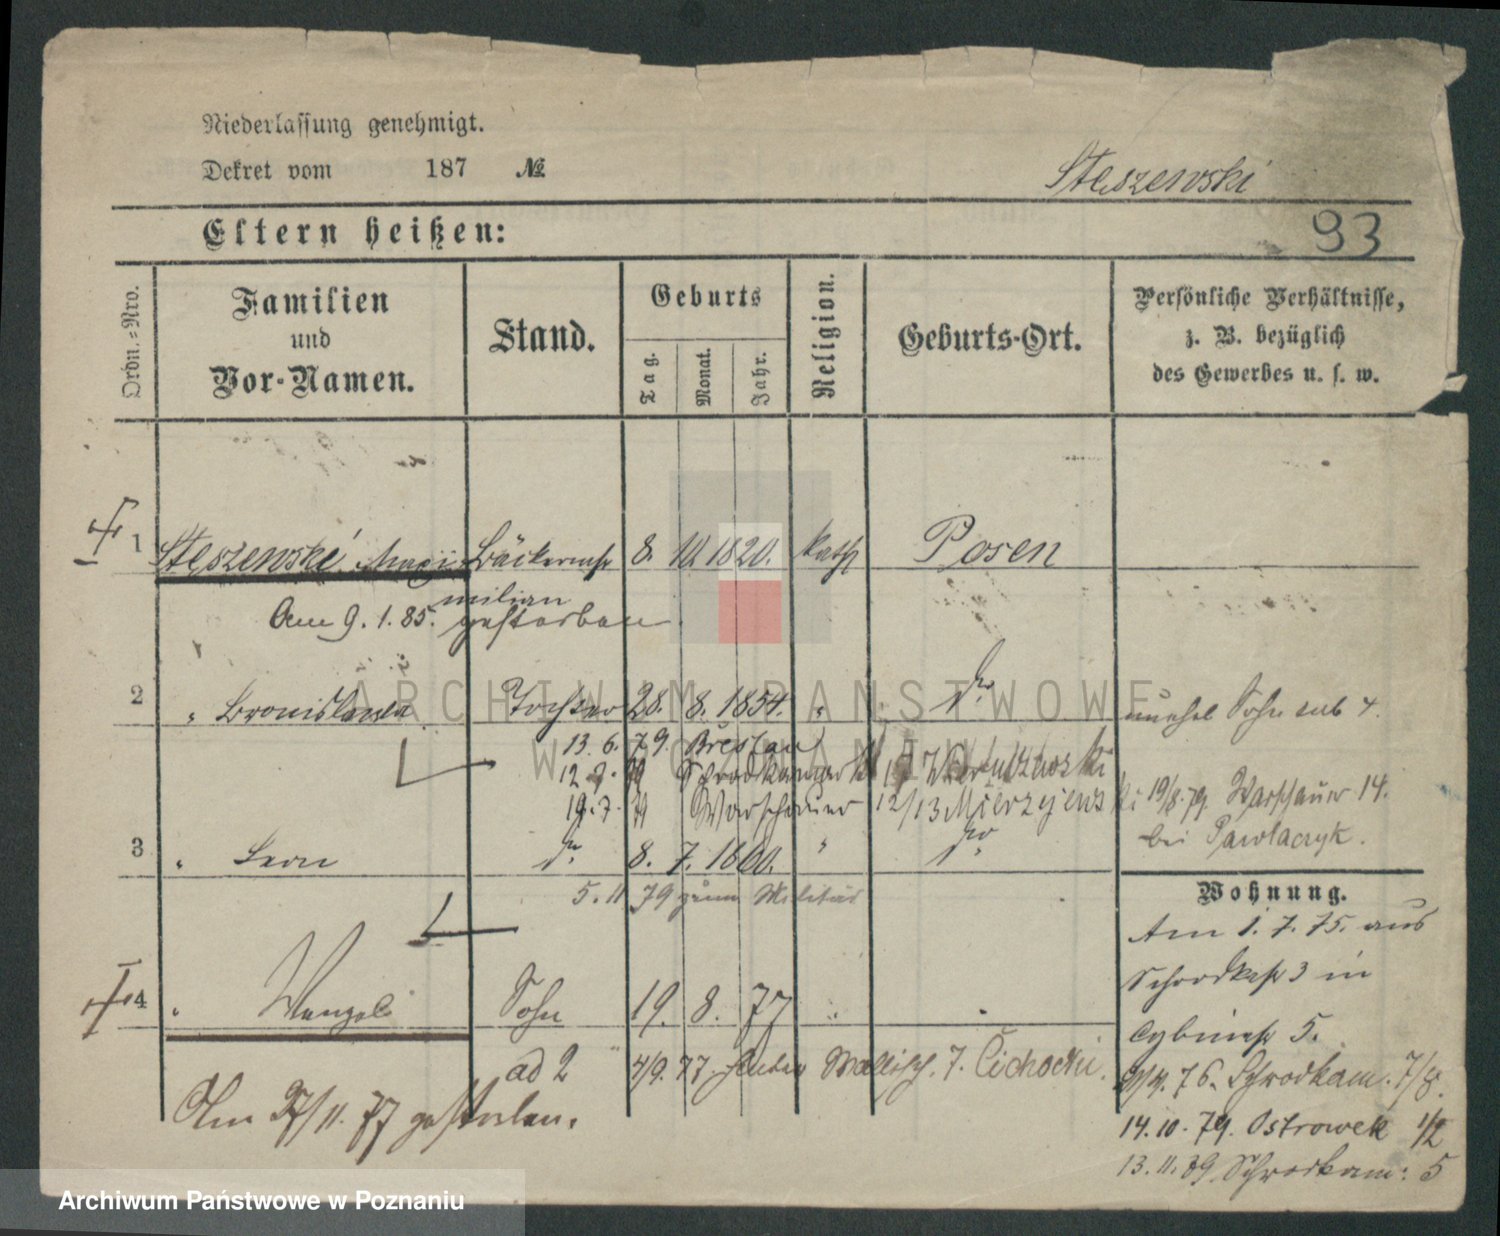 Niederlassung genehmigt.
Dekret vom 187 №
Stęszewski
Eltern heißen:
93
Ordn.-Nro.
Familien und Vor-Namen.
Stand.
Geburts
Tag.
Monat.
Jahr.
Religion.
Geburts-Ort.
Persönliche Verhältnisse,
z. B. bezüglich
des Gewerbes u. s. w.
1 Stęszewski Maxi- 8. 10. 1820. kath Posen
milian
Am 9. 1. 85. gestorben.
2 " Bronislawa Tochter 28. 8. 1854. " do
unehel Sohn sub 4.
13. 6. 79. Breslau
12. 7. 79 Schrodkamarkt 17
19. 7. 79 Warschauer 12/13 Mierzyjewski
19/8. 79. Warschauer 14.
bei Pawlaczyk.
3 " Leon do 8. 7. 1860. " do
5. 11 79 zum Militär
Wohnung.
Am 1. 7. 75. aus
Schrodkstr 3 in
Cybinastr 5.
4 " Wenzel Sohn 19. 8. 77 "
ad 2 4/9. 77. Wallisch. 7. Cichocki.
76. Schrodkam. 7/8.
Am 27/11. 77 gestorben.
14. 10. 79. Ostrowek 1/2
13. 11. 89 Schrodkam: 5
ARCHIWUM PAŃSTWOWE
W POZNANIU
Archiwum Państwowe w Poznaniu